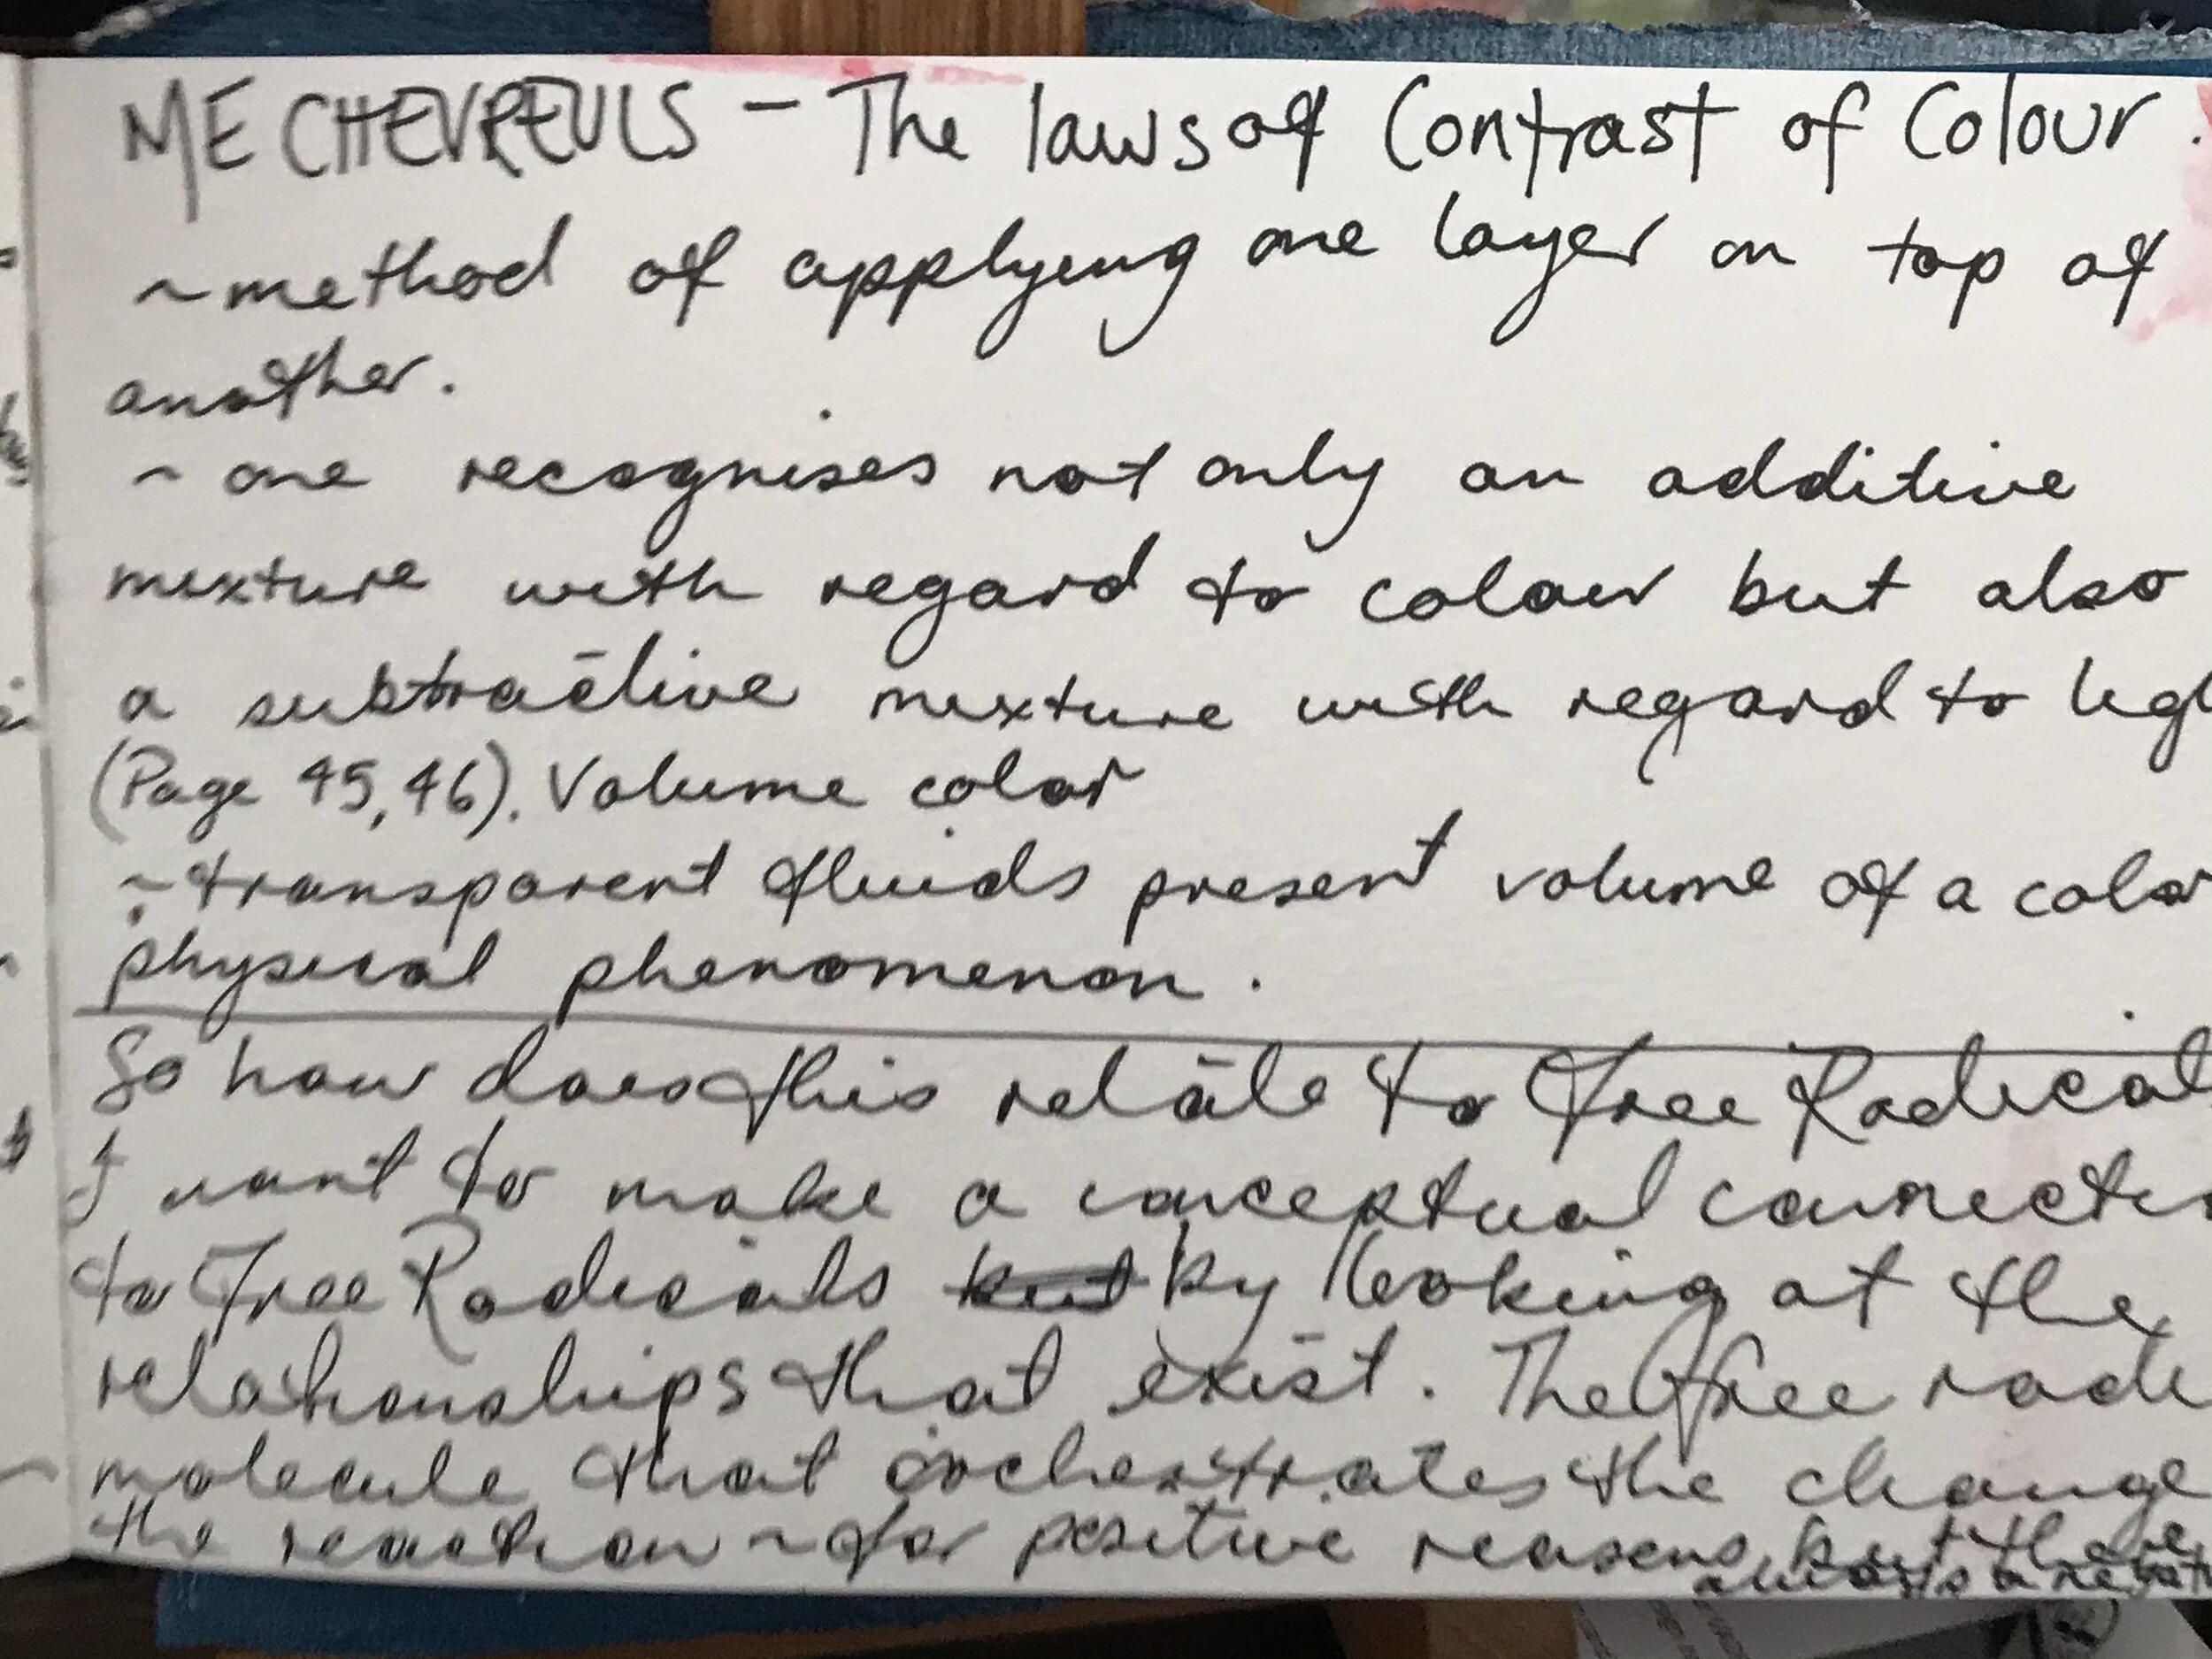 ME CHEVREULS - The laws of Contrast of Colour.
~ method of applying one layer on top of
another.
~ one recognises not only an additive
mixture with regard to colour but also
a subtractive mixture with regard to ligh
(Page 45, 46). Volume color
~ transparent fluids present volume of a color
physical phenomenon.
So how does this relate to Free Radical
I want to make a conceptual connecti
to Free Radicals but by looking at the
relationships that exist. The free radi
molecule that orchestrates the change
the reaction ~ for positive reasons but there
always a negati